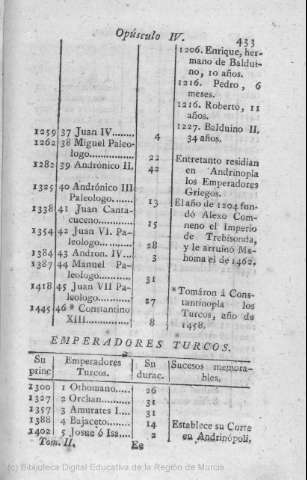 Opúsculo IV. 433
1206. Enrique, her-
mano de Baldui-
no, 10 años.
1216. Pedro, 6
meses.
1216. Roberto, 11
años.
1227. Balduino II.
34 años.
1259 37 Juan IV........ 4
1262 38 Miguel Paleo-
logo........... 22
1282 39 Andrónico II. 42
Entretanto residian
en Andrinopla
los Emperadores
Griegos.
1325 40 Andrónico III
Paleologo..... 13
1338 41 Juan Canta-
cuceno........ 15
1354 42 Juan VI. Pa-
leologo....... 28
1384 43 Andron. IV... 3
1387 44 Manuel Pa-
leologo....... 31
El año de 1204 fun-
dó Alexo Com-
neno el Imperio
de Trebisonda,
y le arruinó Ma-
homa el de 1462.
1418 45 Juan VII Pa-
leologo....... 27
1445 46 * Constantino
XIII.......... 8
* Tomáron á Cons-
tantinopla los
Turcos, año de
1458.
EMPERADORES TURCOS.
Su princ | Emperadores Turcos. | Su durac. | Sucesos memora-bles.
1300 1 Othomano.... 26
1327 2 Orchan........ 31
1357 3 Amurates I.... 31
1388 4 Bajaceto...... 14 Establece su Corte
1402 5 Josue ó Iss.... 2 en Andrinópoli.
Tom. II. Ee
(c) Biblioteca Digital Educativa de la Región de Murcia